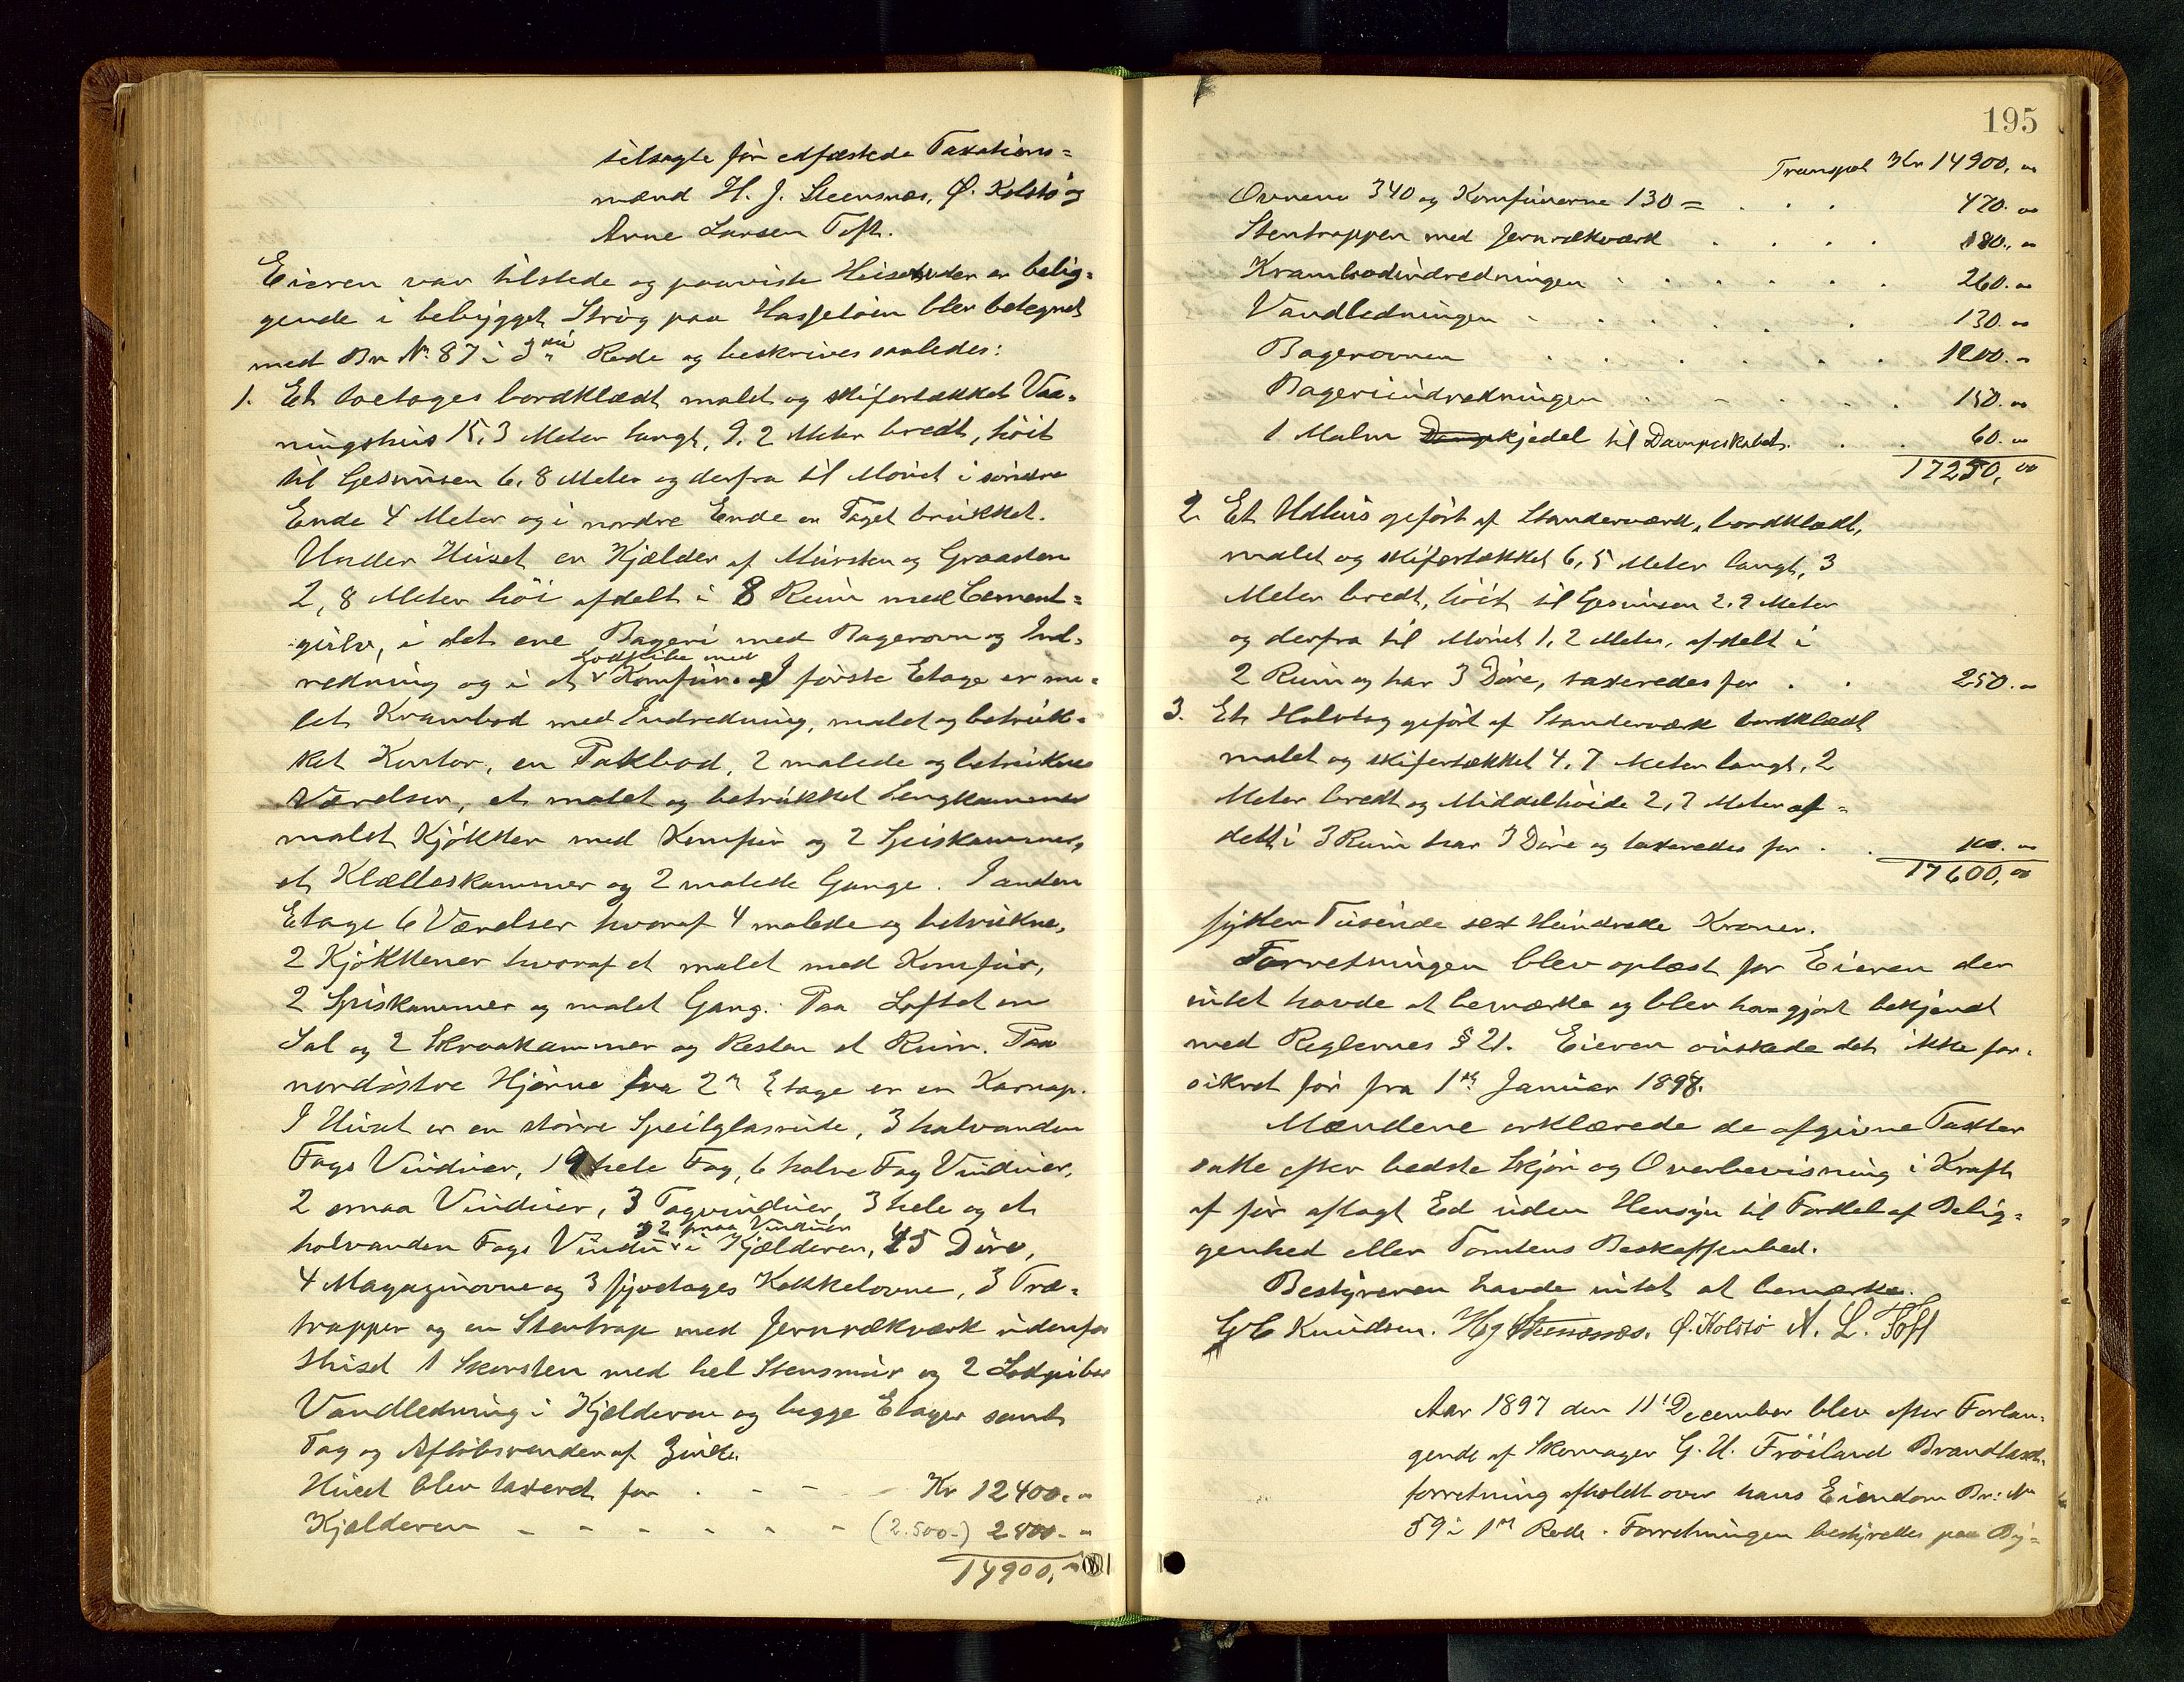 tilsagte før edfæstede Taxations=
mænd H. J. Steensnæs, Ø. Kolstø og
Arne Larsen Toft.
Eieren var tilstede og paaviste Huset der er belig=
gende i bebygget Strøg paa Hasseløen blev betegnet
med Br No. 87 i 3die Rode og beskrives saaledes:
1. Et toetages bordklædt malet og skifertækket Vaa=
ningshus 15,3 Meter langt, 9,2 Meter bredt, høit
til Gesimsen 6,8 Meter og derfra til Mønet i søndre
Ende 4 Meter og i nordre Ende er Taget brukket.
Under Huset en Kjælder af Mursten og Graasten
2,8 Meter høi afdelt i 8 Rum med Cement=
gulv, i det ene Bageri med Bagerovn og Ind=
Lodpibe med
redning og i et v Komfur. I første Etage er ma=
let Krambod med Indredning, malet og betruk=
ket Kontor, en Pakbod, 2 malede og betrukne
Værelser, et malet og betrukket Sengkammer
malet Kjøkken med Komfur og 2 Spiskammer,
et Klædeskammer og 2 malede Gange. I anden
Etage 6 Værelser hvoraf 4 malede og betrukne,
2 Kjøkkener hvoraf et malet med Komfur,
2 Spiskammer og malet Gang. Paa Loftet en
Sal og 2 Skraakammer og Resten et Rum. Paa
nordøstre Hjørne fra 2n Etage er en Karnap.
I Huset er en større Speilglasrude, 3 halvanden
Fags Vinduer, 19 hele Fag, 6 halve Fag Vinduer,
2 smaa Vinduer, 3 Tagvinduer, 3 hele og et
og 2 smaa Vinduer
halvanden Fags Vindu v i Kjælderen, 45 Døre,
4 Magazinovne og 3 fyretages Kakkelovne, 3 Træ=
trapper og en Stentrap med Jernrækværk udenfor
Huset 1 Skorsten med hel Stensmur og 2 Lodpiber
Vandledning i Kjælderen og begge Etager samt
Tag og Afløbsrender af Zink.
Huset blev taxeret for . - - - Kr 12400. "
Kjælderen - - - - - - (2.500-) 2500. "
14900, "
195
Transport Kr 14900, "
Ovnene 340 og Komfurerne 130 = . . . 470. "
Stentrappen med Jernrækværk . . . . 180., "
Krambodindredningen . . . . . . 260. "
Vandledningen . . . . . . 130. "
Bagerovnen . . . . . . 1100. "
Bageriindredningen . . . . . . 150. "
1 Malm Dampkjedel til Dampskabet. . . 60. "
17250,00
2. Et Udhus opført af Standerværk, bordklædt,
malet og skifertækket 6,5 Meter langt, 3
Meter bredt, høit til Gesimsen 2,2 Meter
og derfra til Mønet 1,2 Meter, afdelt i
2 Rum og har 3 Døre, taxeredes for . . 250. "
3. Et Halvtag opført af Standerværk bordklædt
malet og skifertækket 4,7 Meter langt, 2
Meter bredt og Middelhøide 2,7 Meter af=
delt i 3 Rum har 3 Døre og taxeredes for . . 100. "
17600,00
sytten Tusinde sex Hundrede Kroner.
Forretningen blev oplæst for Eieren der
intet havde at bemærke og blev han gjort bekjendt
med Reglernes § 21. Eieren ønskede det ikke for=
sikret før fra 1ste Januar 1898.
Mændene erklærede de afgivne Taxter
satte efter bedste Skjøn og Overbevisning i Kraft
af før aflagt Ed uden Hensyn til Fordel af Belig=
genhed eller Tomtens Beskaffenhed.
Bestyreren havde intet at bemærke.
G C Knudsen. H J Steensnæs. Ø. Kolstø A. L. Toft
Aar 1897 den 11' December blev efter Forlan=
gende af Skomager G. U. Frøiland Brandtaxt=
forretning afholdt over hans Eiendom Br: No
59 i 1ste Rode. Forretningen bestyredes paa By=